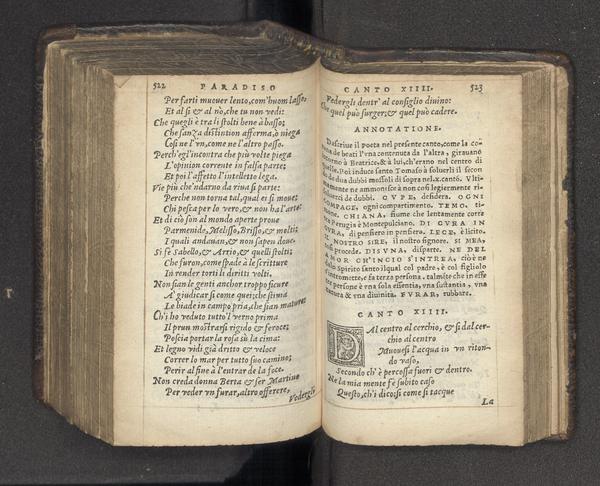 522 PARADISO
Per farti muouer lento, com'huom lasso,
Et al si & al nò, che tu non vedi:
Che quegli è tra li stolti bene à basso;
Che sanza distintion afferma, ò niega
Cosi ne l'vn, come ne l'altro passo.
Perch'egl'incontra che più volte piega
L'opinion corrente in falsa parte:
Et poi l'affetto l'intelletto lega.
Vie più che'ndarno da riua si parte:
Perche non torna tal, qual ei si moue;
Chi pesca per lo vero, & non ha l'arte:
Et di ciò son al mondo aperte proue
Parmenide, Melisso, Brisso, & molti;
I quali andauan, & non sapen doue.
Si fe Sabello, & Arrio, & quelli stolti;
Che furon, come spade à le scritture
In render torti li diritti volti.
Non sian le genti anchor troppo sicure
A' giudicar si come quei; che stima
Le biade in campo pria, che sian mature:
Ch'i ho veduto tutto'l verno prima
Il prun mostrarsi rigido & feroce;
Poscia portar la rosa sù la cima:
Et legno vidi già dritto & veloce
Correr lo mar per tutto suo camino;
Perir al fine à l'entrar de la foce.
Non creda donna Berta & ser Martino
Per veder vn furar, altro offerere,
Vedergli
CANTO XIIII. 523
Vedergli dentr' al consiglio diuino:
Che quel può surger, & quel può cadere.
ANNOTATIONE.
Dascriue il poeta nel presente canto, come la co-
rona de beati l'vna contenuta da l'altra, girauano
intorno à Beatrice, & à lui, ch'erano nel centro di
quelle. Poi induce santo Tomaso à soluerli il secon
do de dua dubbi mossoli di sopra nel.x. canto. Vlti-
mamente ne ammonisce à non cosi legiermente ri-
soluerci de dubbi. CVPE, desidera. OGNI
COMPAGE, ogni compartimento. TEMO, ti-
mone. CHIANA, fiume che lentamente corre
tra Perugia è Montepulciano. DI CVRA IN
CVRA, di pensiero in pensiero. LECE, è licito.
IL NOSTRO SIRE, il nostro signore. SI MEA,
si procede. DISVNA, disparte. NE DEL
AMOR CH'INCIO S'INTREA, cioè ne
dallo Spirito santo ilqual col padre, è col figliolo
s'intromette, è fa terza persona, talmẽte che in esse
tre persone è vna sola essentia, vna sustantia, vna
natura & vna diuinita. FVRAR, rubbare.
CANTO XIIII.
DAl centro al cerchio, & si dal cer-
chio al centro
Muouesi l'acqua in vn riton-
do vaso,
Secondo ch'è percossa fuori & dentro.
Ne la mia mente fè subito caso
Questo, ch'i dico: si come si tacque
La